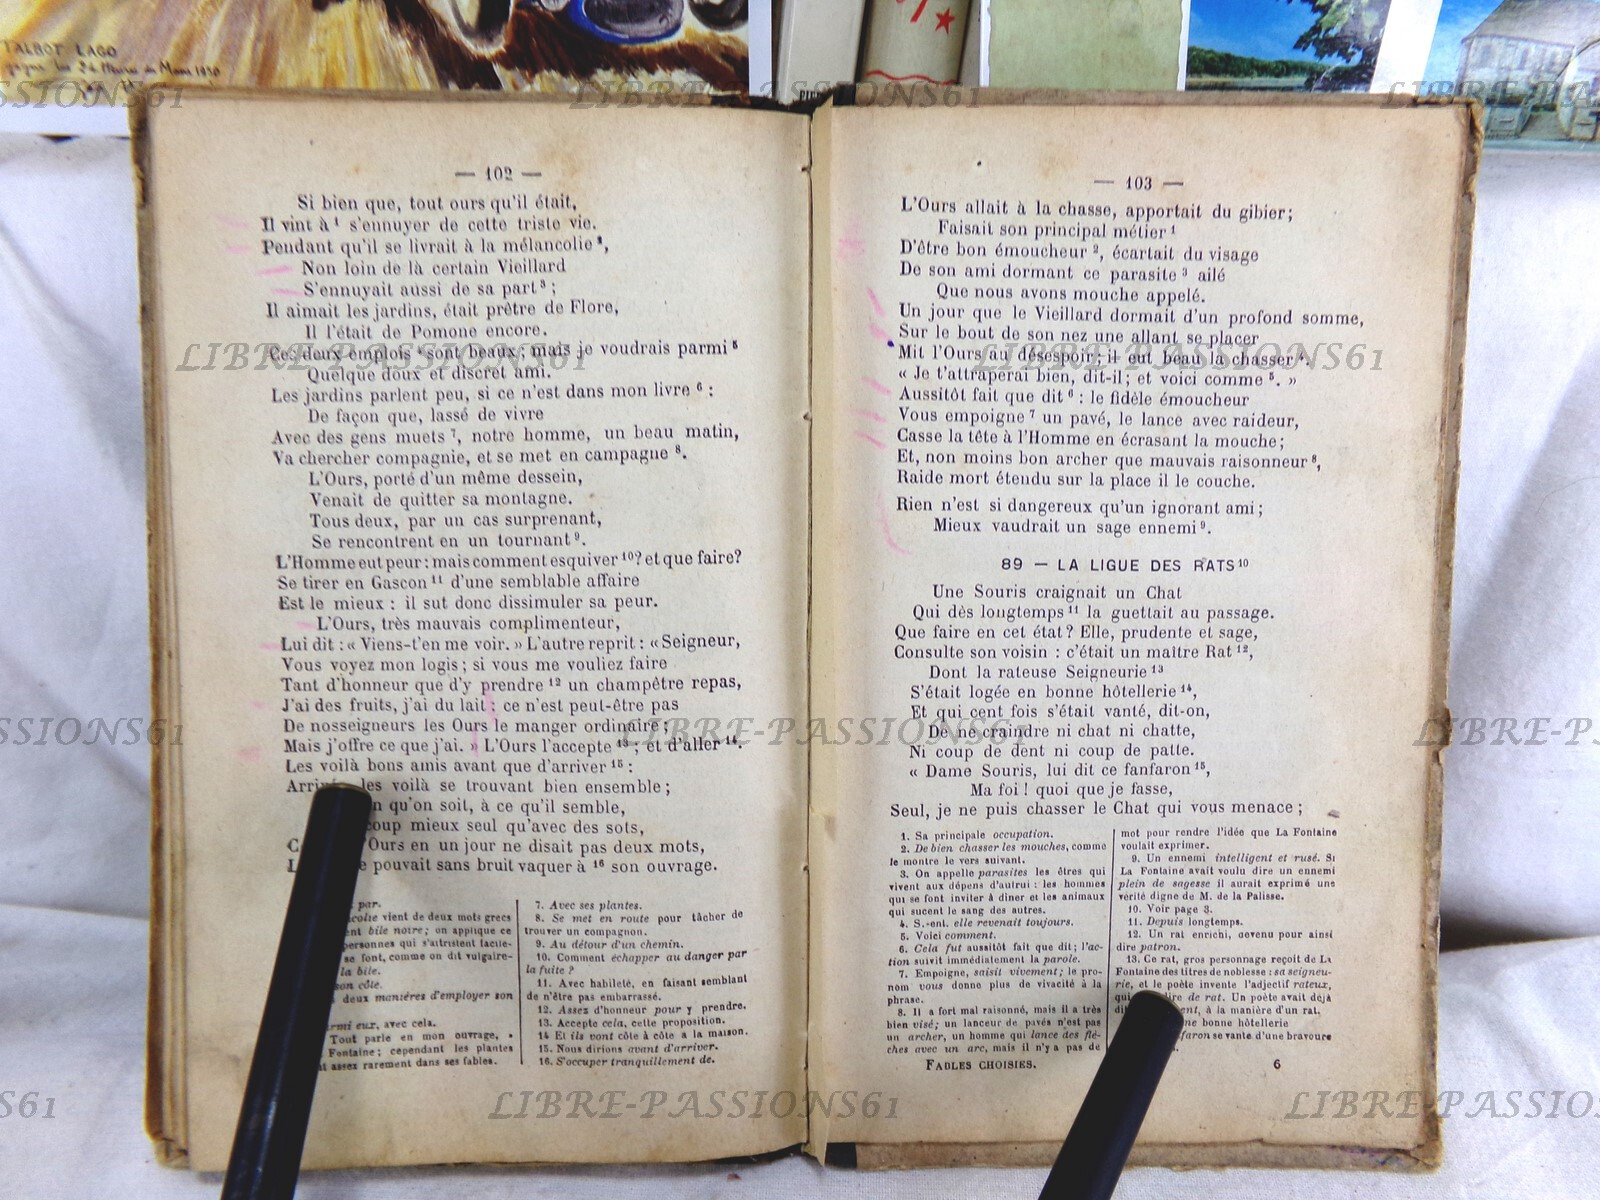 TALBOT LAGO
— 102 —
Si bien que, tout ours qu'il était,
Il vint à ¹ s'ennuyer de cette triste vie.
Pendant qu'il se livrait à la mélancolie ²,
Non loin de là certain Vieillard
S'ennuyait aussi de sa part ³ ;
Il aimait les jardins, était prêtre de Flore,
Il l'était de Pomone encore.
Ces deux emplois ⁴ sont beaux ; mais je voudrais parmi ⁵
Quelque doux et discret ami.
Les jardins parlent peu, si ce n'est dans mon livre ⁶ :
De façon que, lassé de vivre
Avec des gens muets ⁷, notre homme, un beau matin,
Va chercher compagnie, et se met en campagne ⁸.
L'Ours, porté d'un même dessein,
Venait de quitter sa montagne.
Tous deux, par un cas surprenant,
Se rencontrent en un tournant ⁹.
L'Homme eut peur : mais comment esquiver ¹⁰? et que faire?
Se tirer en Gascon ¹¹ d'une semblable affaire
Est le mieux : il sut donc dissimuler sa peur.
L'Ours, très mauvais complimenteur,
Lui dit : « Viens-t'en me voir. » L'autre reprit : « Seigneur,
Vous voyez mon logis ; si vous me vouliez faire
Tant d'honneur que d'y prendre ¹² un champêtre repas,
J'ai des fruits, j'ai du lait : ce n'est peut-être pas
De nosseigneurs les Ours le manger ordinaire ;
Mais j'offre ce que j'ai. » L'Ours l'accepte ¹³ ; et d'aller ¹⁴.
Les voilà bons amis avant que d'arriver ¹⁵ :
les voilà se trouvant bien ensemble ;
qu'on soit, à ce qu'il semble,
mieux seul qu'avec des sots,
Ours en un jour ne disait pas deux mots,
pouvait sans bruit vaquer à ¹⁶ son ouvrage.
par.
vient de deux mots grecs
bile noire ; on applique ce
personnes qui s'attristent facile-
se font, comme on dit vulgaire-
la bile.
son côte.
deux manières d'employer son
eux, avec cela.
Tout parle en mon ouvrage,
Fontaine ; cependant les plantes
assez rarement dans ses fables.
7. Avec ses plantes.
8. Se met en route pour tâcher de
trouver un compagnon.
9. Au détour d'un chemin.
10. Comment échapper au danger par
la fuite ?
11. Avec habileté, en faisant semblant
de n'être pas embarrassé.
12. Assez d'honneur pour y prendre.
13. Accepte cela, cette proposition.
14 Et ils vont côte à côte a la maison.
15. Nous dirions avant d'arriver.
16. S'occuper tranquillement de.
— 103 —
L'Ours allait à la chasse, apportait du gibier ;
Faisait son principal métier ¹
D'être bon émoucheur ², écartait du visage
De son ami dormant ce parasite ³ ailé
Que nous avons mouche appelé.
Un jour que le Vieillard dormait d'un profond somme,
Sur le bout de son nez une allant se placer
Mit l'Ours au désespoir ; il eut beau la chasser ⁴.
« Je t'attraperai bien, dit-il ; et voici comme ⁵. »
Aussitôt fait que dit ⁶ : le fidèle émoucheur
Vous empoigne ⁷ un pavé, le lance avec raideur,
Casse la tête à l'Homme en écrasant la mouche ;
Et, non moins bon archer que mauvais raisonneur ⁸,
Raide mort étendu sur la place il le couche.
Rien n'est si dangereux qu'un ignorant ami ;
Mieux vaudrait un sage ennemi ⁹.
89 — LA LIGUE DES RATS ¹⁰
Une Souris craignait un Chat
Qui dès longtemps ¹¹ la guettait au passage.
Que faire en cet état ? Elle, prudente et sage,
Consulte son voisin : c'était un maître Rat ¹²,
Dont la rateuse Seigneurie ¹³
S'était logée en bonne hôtellerie ¹⁴,
Et qui cent fois s'était vanté, dit-on,
De ne craindre ni chat ni chatte,
Ni coup de dent ni coup de patte.
« Dame Souris, lui dit ce fanfaron ¹⁵,
Ma foi ! quoi que je fasse,
Seul, je ne puis chasser le Chat qui vous menace ;
1. Sa principale occupation.
2. De bien chasser les mouches, comme
le montre le vers suivant.
3. On appelle parasites les êtres qui
vivent aux dépens d'autrui : les hommes
qui se font inviter à diner et les animaux
qui sucent le sang des autres.
4. S.-ent. elle revenait toujours.
5. Voici comment.
6. Cela fut aussitôt fait que dit ; l'ac-
tion suivit immédiatement la parole.
7. Empoigne, saisit vivement ; le pro-
nom vous donne plus de vivacité à la
phrase.
8. Il a fort mal raisonné, mais il a très
bien visé ; un lanceur de pavés n'est pas
un archer, un homme qui lance des flè-
ches avec un arc, mais il n'y a pas de
mot pour rendre l'idée que La Fontaine
voulait exprimer.
9. Un ennemi intelligent et rusé. Si
La Fontaine avait voulu dire un ennemi
plein de sagesse il aurait exprimé une
vérité digne de M. de la Palisse.
10. Voir page 3.
11. Depuis longtemps.
12. Un rat enrichi, devenu pour ainsi
dire patron.
13. Ce rat, gros personnage reçoit de La
Fontaine des titres de noblesse : sa seigneu-
rie, et le poète invente l'adjectif rateux,
de rat. Un poète avait déjà
à la manière d'un rat.
bonne hôtellerie
se vante d'une bravoure
FABLES CHOISIES.
6
LIBRE-PASSIONS61